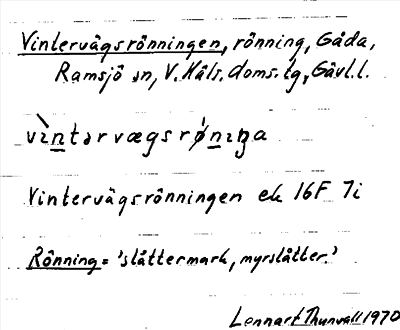 Vintervägsrönningen, rönning, Gåda,
Ramsjö sn, V. Häls. doms. tg, Gävl. l.
vìntərvægsrǿnıŋa
Vintervägsrönningen ek 16F 7i
Rönning = 'slåttermark, myrslåtter.'
Lennart Thunvall 1970